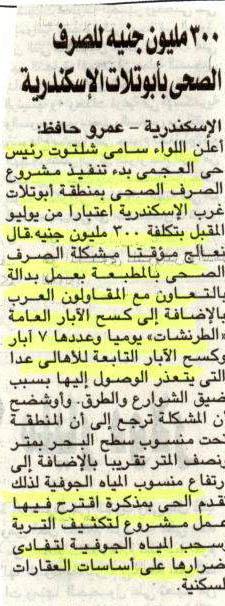 ٣٠٠ مليون جنيه للصرف
الصحى بأبوتلات الإسكندرية
الإسكندرية - عمرو حافظ:
أعلن اللواء سامى شلتوت رئيس
حى العجمى بدء تنفيذ مشروع
الصرف الصحى بمنطقة أبوتلات
غرب الإسكندرية اعتبارا من يوليو
المقبل بتكلفة ٣٠٠ مليون جنيه.قال
نعالج مؤقتنا مشكلة الصرف
الصحى بالمطبعة بعمل بدالة
بالتعاون مع المقاولون العرب
بالإضافة إلى كسح الآبار العامة
«الطرنشات» يوميا وعددها ٧ آبار
وكسح الآبار التابعة للأهالى عدا
التى يتعذر الوصول إليها بسبب
ضيق الشوارع والطرق. وأوشضح
أن المشكلة ترجع إلى أن المنطقة
تحت منسوب سطح البحر بمتر
ونصف المتر تقريبا بالإضافة إلى
رتفاع منسوب المياه الجوفية لذلك
تقدم الحى بمذكرة اقترح فيها
عمل مشروع لتكشيف التربة
وسحب المياه الجوفية لتفادى
ضرارها على أساسات العقارات
لسكنية.